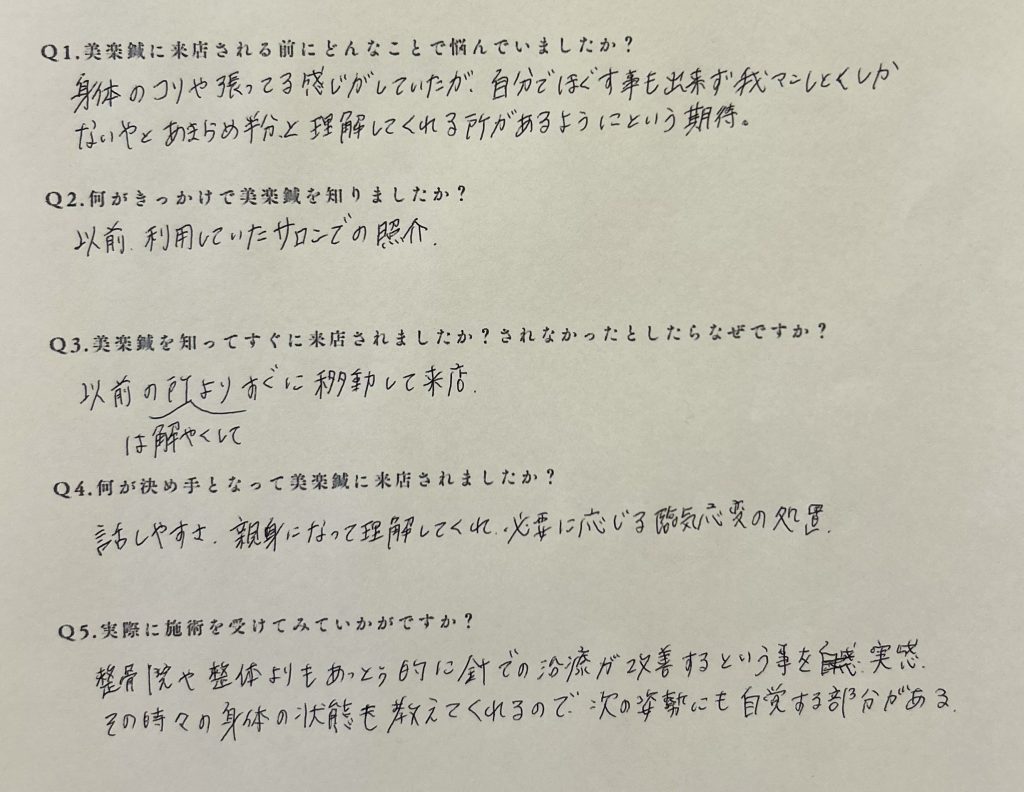 Q1.美楽鍼に来店される前にどんなことで悩んでいましたか?
身体のコリや張ってる感じがしていたが、自分でほぐす事も出来ず我マンしとくしか
ないやと あきらめ半分、と 理解してくれる所があるようにという期待。
Q2.何がきっかけで美楽鍼を知りましたか?
以前、利用していたサロンでの照介.
Q3.美楽鍼を知ってすぐに来店されましたか?されなかったとしたらなぜですか?
以前の所よりすぐに移動して来店.
は解やくして
Q4.何が決め手となって美楽鍼に来店されましたか?
話しやすさ、親身になって理解してくれ、必要に応じる臨気応変の処置.
Q5.実際に施術を受けてみていかがですか?
整骨院や整体よりもあっとう的に針での治療が改善するという事を 実感.
その時々の身体の状態も教えてくれるので、次の姿勢にも自覚する部分がある.